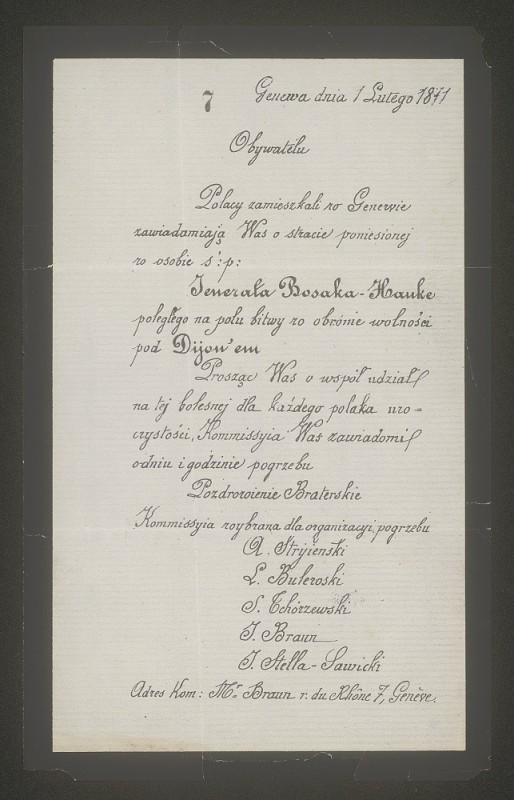 7
Genewa dnia 1 Lutego 1871
Obywatelu
Polacy zamieszkali w Genewie
zawiadamiają Was o stracie poniesionej
w osobie ś:p:
Jenerała Bosaka-Hauke
poległego na polu bitwy w obronie wolności
pod Dijon'em
Prosząc Was o wspól udział
na tej bolesnej dla każdego polaka uro-
czystości, Kommissyia Was zawiadomi
o dniu i godzinie pogrzebu
Pozdrowienie Braterskie
Kommissyia wybrana dla organizacyi pogrzebu
A. Stryieński
L. Bulewski
S. Tchórzewski
J. Braun
J. Stella-Sawicki
Adres Kom: Mr. Braun r. du Rhône 7, Genève.